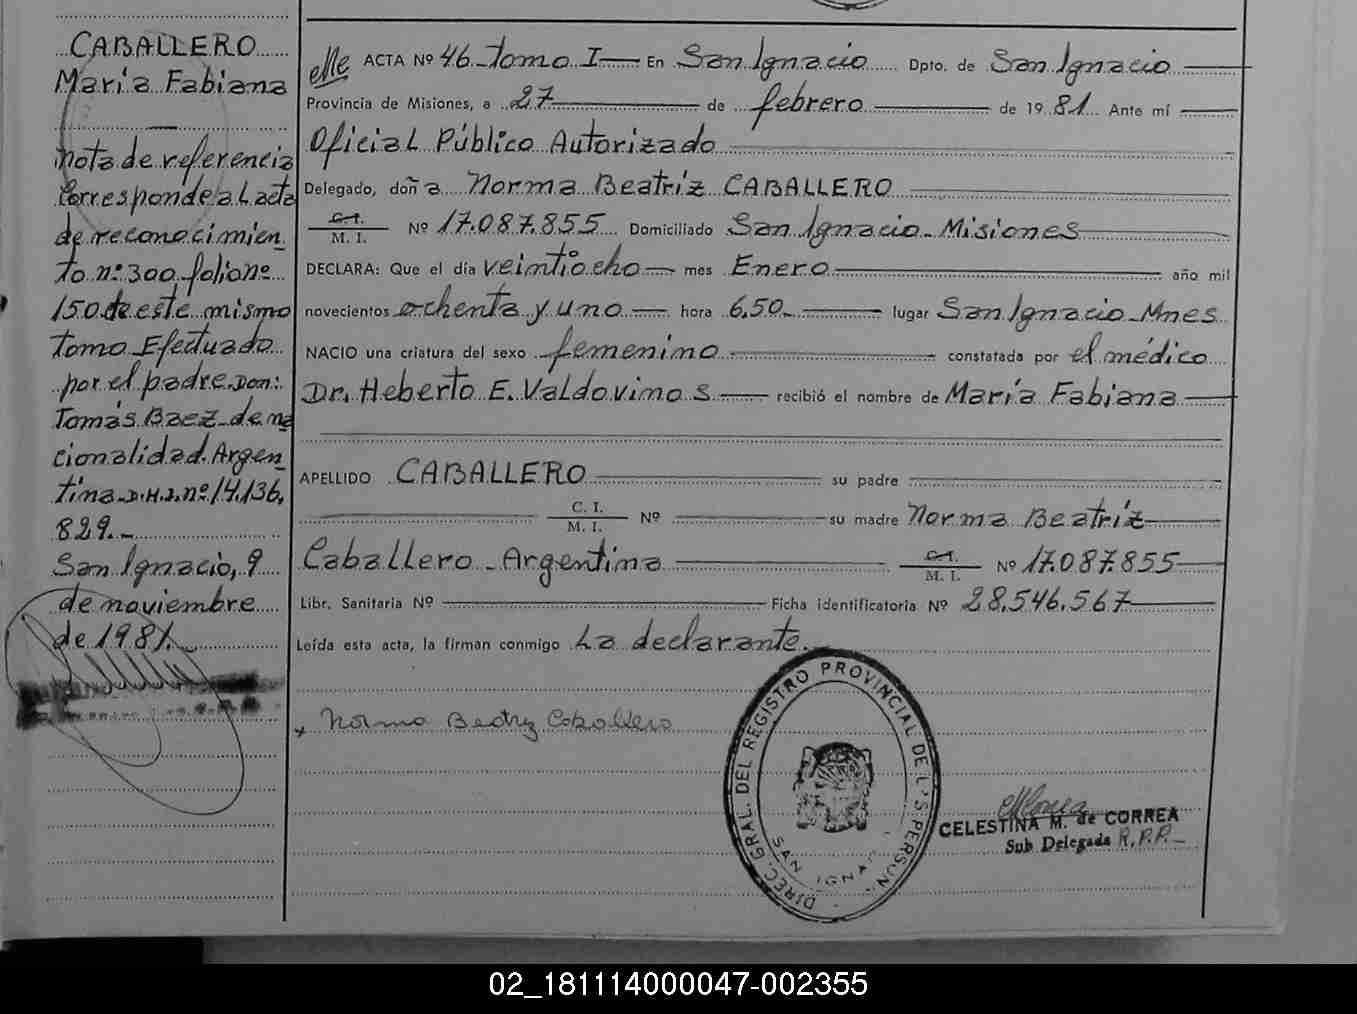 CABALLERO
María Fabiana
Nota de referencia
Corresponde al acta
de reconocimien
to nº 300 folio nº
150 de este mismo
tomo Efectuado
por el padre Don:
Tomás Baez de na
cionalidad Argen
tina D.N.I. nº 14.136.
829.-
San Ignacio, 9
de noviembre
de 1981.-
ACTA Nº 46 Tomo I En San Ignacio Dpto. de San Ignacio
Provincia de Misiones, a 27 de febrero de 1981 Ante mí
Oficial Público Autorizado
Delegado, doña Norma Beatríz CABALLERO
C. I.
M. I. Nº 17.087.855 Domiciliado San Ignacio - Misiones
DECLARA: Que el día veintiocho mes Enero año mil
novecientos ochenta y uno hora 6,50.- lugar San Ignacio - Mnes
NACIO una criatura del sexo femenino constatada por el médico
Dr. Heberto E. Valdovinos recibió el nombre de María Fabiana
APELLIDO CABALLERO su padre
C. I.
M. I. Nº su madre Norma Beatríz
Caballero - Argentina C. I.
M. I. Nº 17.087.855
Libr. Sanitaria Nº Ficha identificatoria Nº 28.546.567
Leída esta acta, la firman conmigo La declarante.
x Norma Beatriz Caballero
DIREC. GRAL. DEL REGISTRO PROVINCIAL DE L S PERSON
SAN IGNA
CELESTINA M. de CORREA
Sub Delegada R.P.P.-
02_181114000047-002355